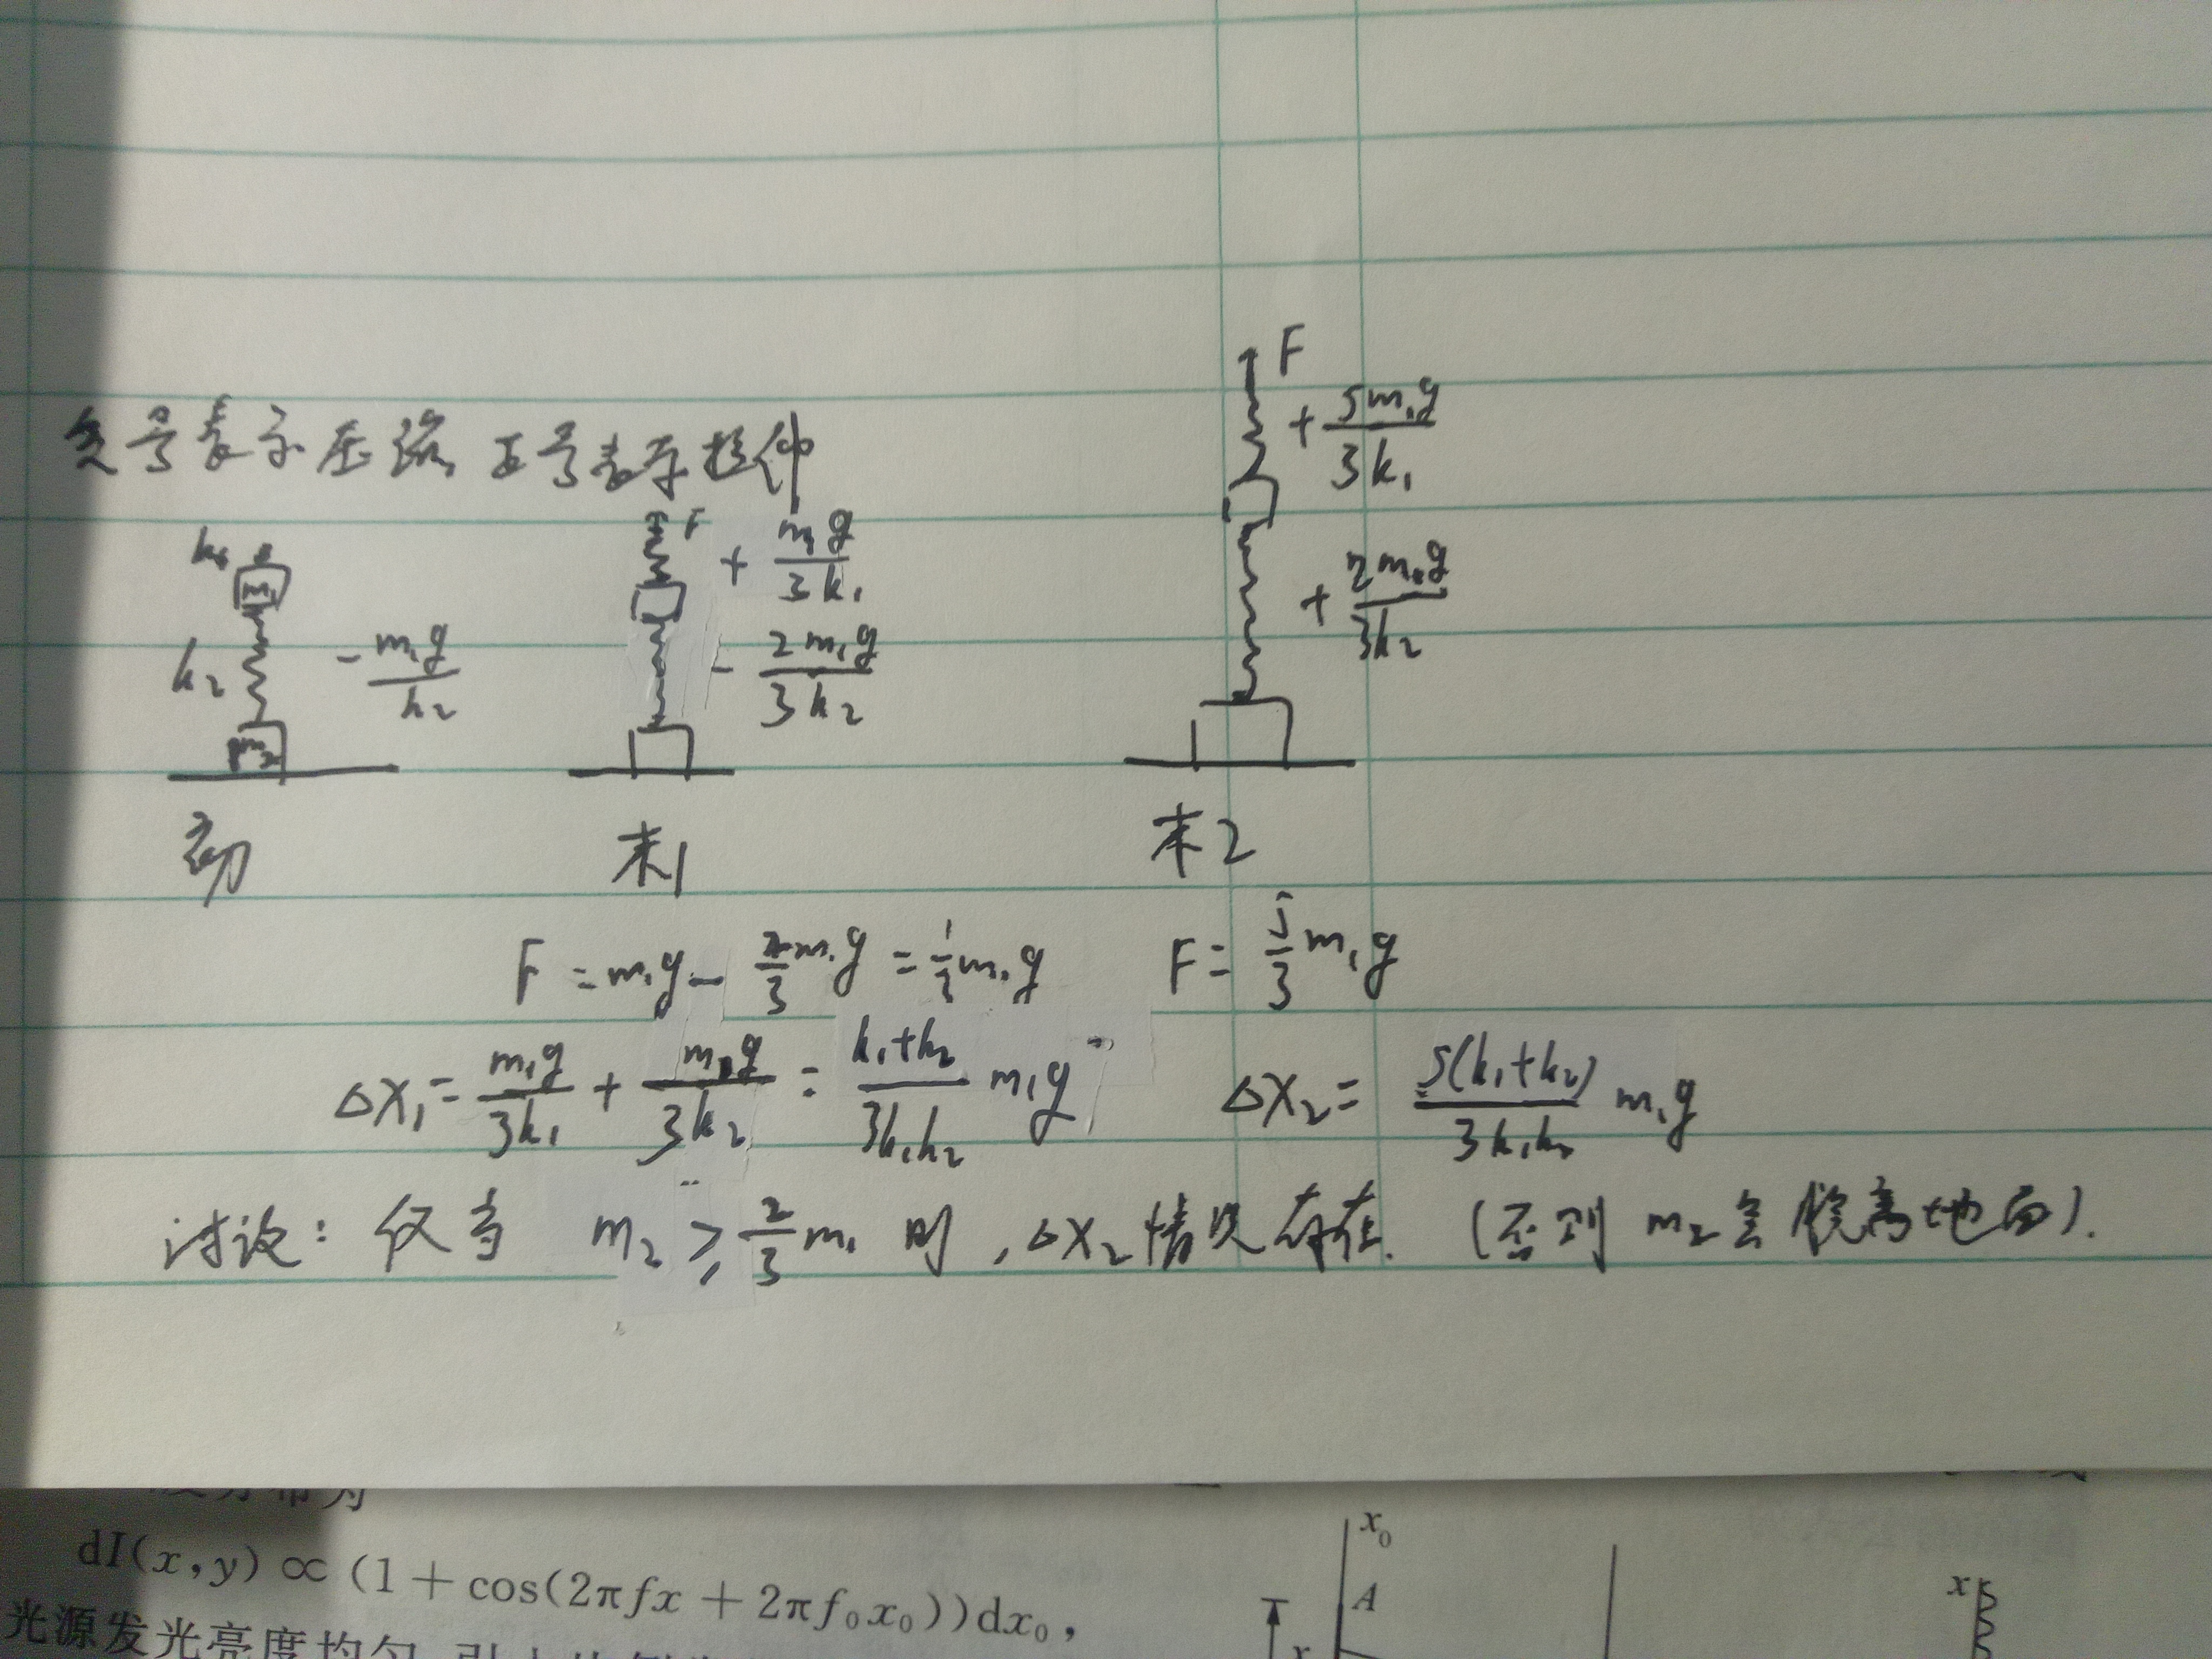 负号表示压缩, 正号表示拉伸
k₁ m₁ k₂ m₂ -m₁g/k₂
F +m₁g/3k₁ -2m₁g/3k₂
F +5m₁g/3k₁ +2m₁g/3k₂
初 末1 末2
F=m₁g-2/3m₁g=1/3m₁g F=5/3m₁g
ΔX₁=m₁g/3k₁+m₁g/3k₂=k₁+k₂/3k₁k₂ m₁g ΔX₂=5(k₁+k₂)/3k₁k₂ m₁g
讨论: 仅当 m₂≥2/3m₁ 时, ΔX₂情况存在. (否则 m₂会脱离地面).
dI(x,y)∝(1+cos(2πfx+2πf₀x₀))dx₀,
光源发光亮度均匀
x₀
A
x
x